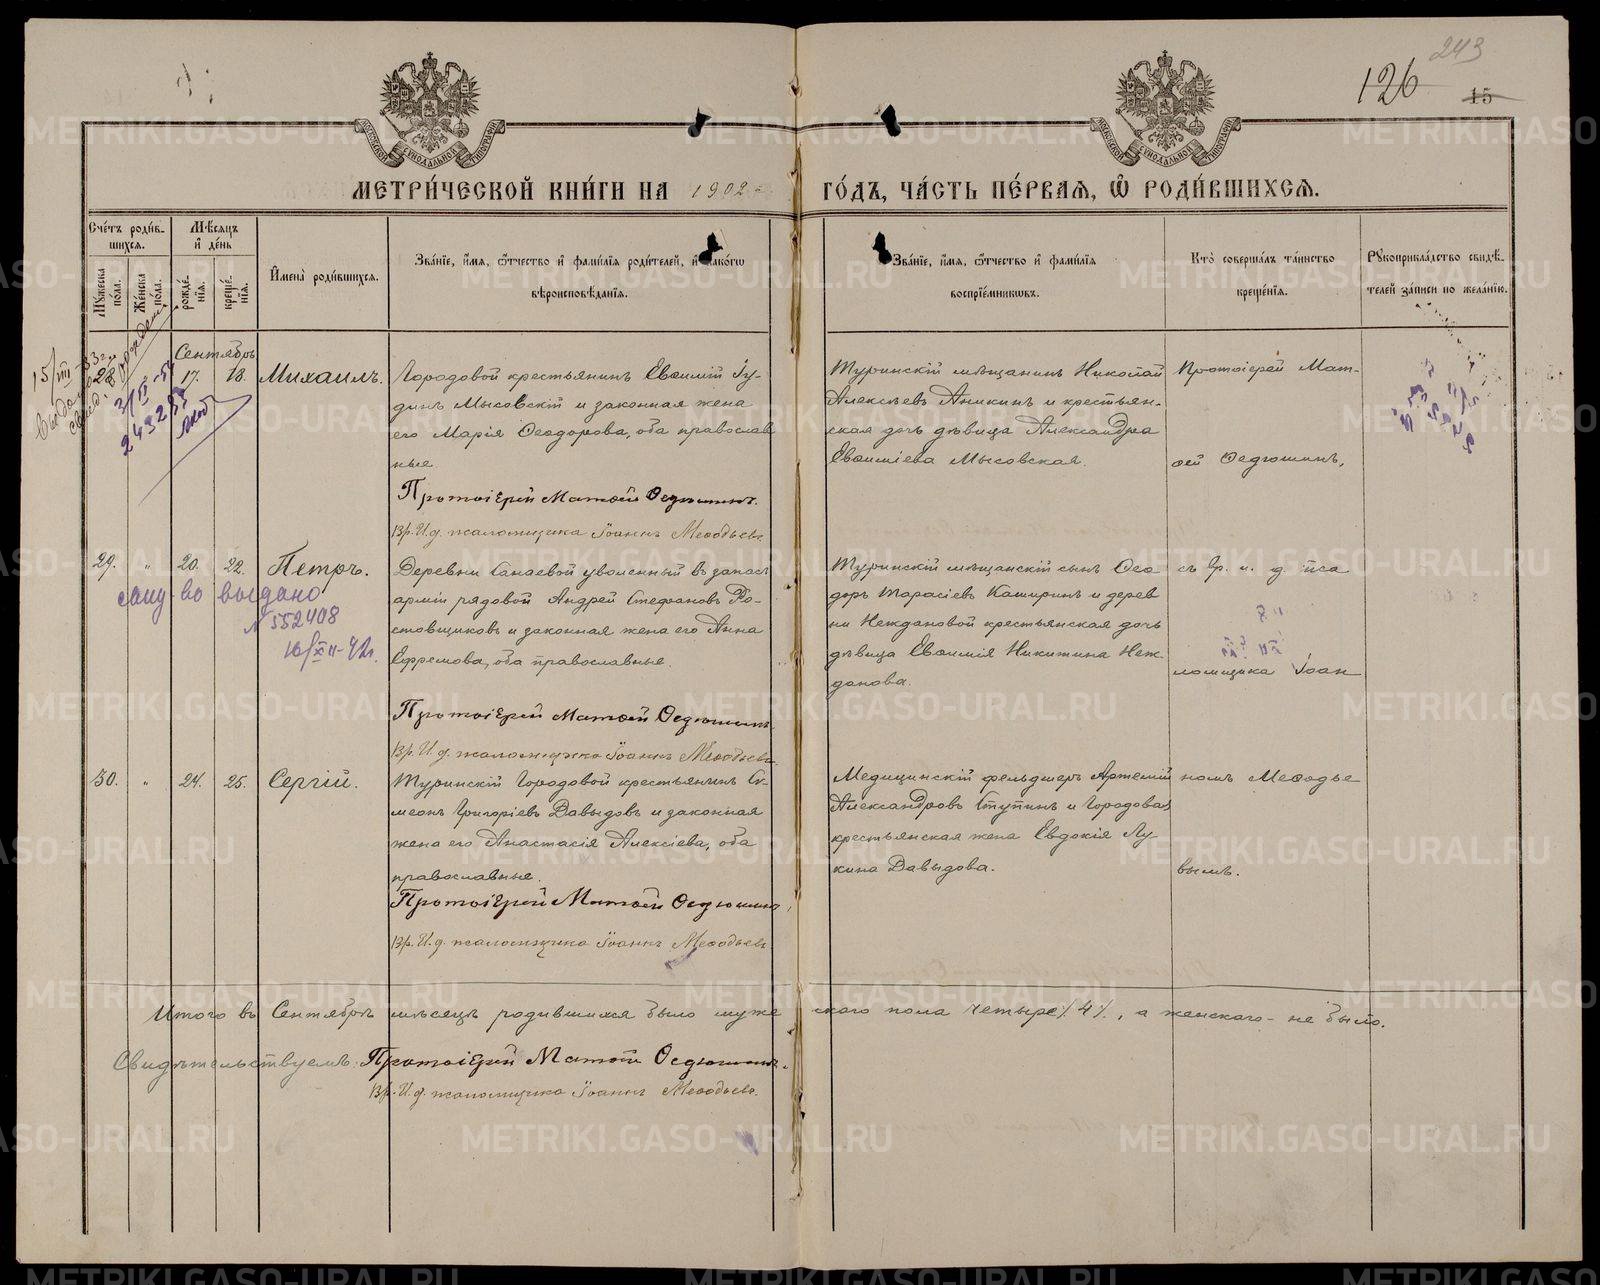 243
126 15
МОСКОВСКОЙ СѴНОДАЛЬНОЙ ТИПОГРАФІИ
МОСКОВСКОЙ СѴНОДАЛЬНОЙ ТИПОГРАФІИ
МЕТРИ́ЧЕСКОЙ КНИ́ГИ НА 1902 ГО́ДЪ, ЧА́СТЬ ПЕ́РВАЯ, Ѿ РОДИ́ВШИХСЯ.
Сче́тъ роди́в-
шихся.
Мѣ́сяцъ
и҆ де́нь
Мꙋ́жеска пола.
Же́нска пола.
рожде́-
нія.
креще́-
нія.
И҆мена̀ роди́вшихся.
Зва́ніе, и҆́мя, ѻ҆́тчество и҆ фами́лія роди́телей, и҆ како́гѡ
вѣроисповѣ́данія.
Зва́ніе, и҆́мя, ѻ҆́тчество и҆ фами́лія
воспріе́мникѡвъ.
Кто̀ соверша́лъ та́инство
креще́нія.
Рꙋкоприкла́дство свидѣ́-
телей за́писи по жела́нію.
Сентябрь
28 17. 18. Михаилъ.
243297
Городовой крестьянинъ Евѳимій Іу-
динъ Мысовскій и законная жена
его Марія Ѳеодорова, оба православ
ные.
Протоіерей Матѳей Ѳедюшинъ.
Вр. И. д. псаломщика Іоаннъ Меѳодьевъ.
Туринскій мѣщанинъ Николай
Алексѣевъ Аникинъ и крестьян-
ская дочь дѣвица Александра
Евѳиміева Мысовская.
Протоіерей Мат-
ѳей Ѳедюшинъ,
29. " 20. 22. Петръ.
выдано
№ 552408
16/XII-42г.
Деревни Санаевой уволенный въ запасъ
арміи рядовой Андрей Стефановъ Ро-
стовщиковъ и законная жена его Анна
Ефремова, оба православные.
Протоіерей Матѳей Ѳедюшинъ
Вр. И. д. псаломщика Іоаннъ Меѳодьевъ.
Туринскій мѣщанскій сынъ Ѳео
доръ Тарасіевъ Каширинъ и дерев
ни Неждановой крестьянская дочь
дѣвица Евѳимія Никитина Неж-
данова.
съ вр. и. д. пса
ломщика Іоан
30. " 24. 25. Сергій.
Туринскій Городовой крестьянинъ Си-
меонъ Григоріевъ Давыдовъ и законная
жена его Анастасія Алексіева, оба
православные.
Протоіерей Матѳей Ѳедюшинъ,
Вр. И. д. псаломщика Іоаннъ Меѳодьевъ.
Медицинскій фельдшеръ Артемій
Александровъ Ступинъ и Городовая
крестьянская жена Евдокія Лу-
кина Давыдова.
номъ Меѳодье
вымъ.
Итого въ Сентябрѣ мѣсяцѣ родившихся было муже скаго пола четыре /4/, а женскаго - не было.
Свидѣтельствуемъ: Протоіерей Матѳей Ѳедюшинъ.
Вр. И. д. псаломщика Іоаннъ Меѳодьевъ.
METRIKI.GASO-URAL.RU